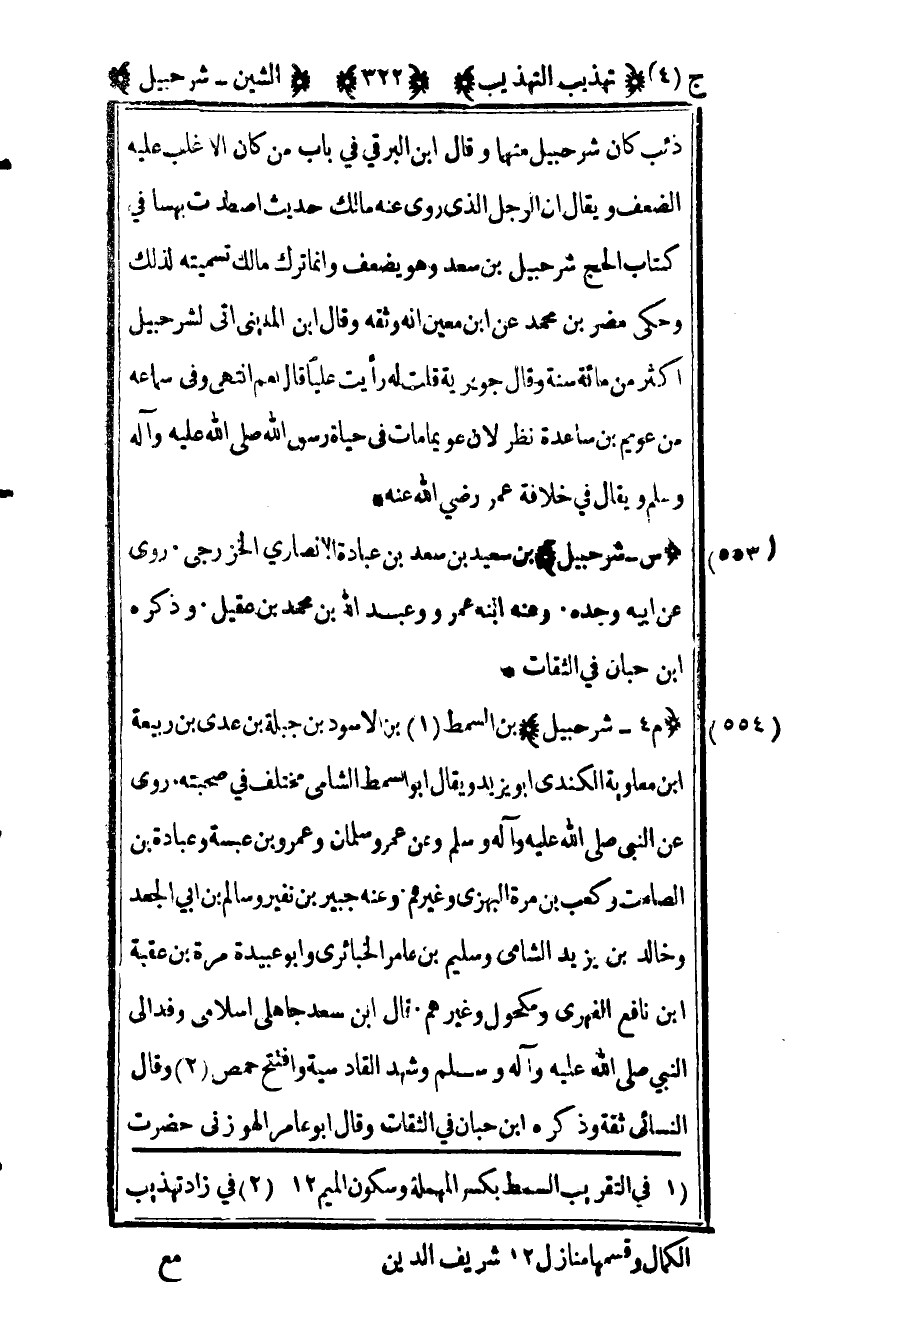 ج (٤) ﴿ تهذيب التهذيب ﴾ ﴿ ٣٢٢ ﴾ ﴿ الشين ـ شرحبيل ﴾
ذئب كان شرحبيل متهما و قال ابن البرقي في باب من كان الاغلب عليه
الضعف و يقال ان الرجل الذى روى عنه مالك حديث اصطدت نهسا في
كتاب الحج شرحبيل بن سعد وهو يضعف وانما ترك مالك تسميته لذلك
وحكى مضر بن محمد عن ابن معين انه وثقه وقال ابن المدينى اتى لشرحبيل
اكثر من مائة سنة وقال جويرية قلت له رأيت علياً قال نعم انتهى وفى سماعه
من عويم بن ساعدة نظر لان عويما مات فى حياة رسول الله صلى الله عليه وآله
وسلم و يقال في خلافة عمر رضي الله عنه •
(٥٥٣) ﴿ س ـ شرحبيل ﴾ بن سعيد بن سعد بن عبادة الانصاري الخزرجى . روى
عن ابيه وجده . وعنه ابنه عمر و وعبد الله بن محمد بن عقيل . و ذكره
ابن حبان في الثقات •
(٥٥٤) ﴿ م ٤ ـ شرحبيل ﴾ بن السمط (١) بن الاسود بن جبلة بن عدى بن ربيعة
ابن معاوية الكندى ابو يزيد ويقال ابو السمط الشامى مختلف في صحبته . روى
عن النبي صلى الله عليه وآله و سلم وعن عمر وسلمان وعمرو بن عبسة وعبادة بن
الصامت وكعب بن مرة البهزى وغيرهم . وعنه جبير بن نفير وسالم بن ابي الجعد
وخالد بن يزيد الشامى وسليم بن عامر الخبائرى وابو عبيدة مرة بن عقبة
ابن نافع الفهرى ومكحول وغيرهم . قال ابن سعد جاهلى اسلامى وفد الى
النبي صلى الله عليه وآله و سلم وشهد القادسية وافتتح حمص (٢) وقال
النسائى ثقة وذكره ابن حبان في الثقات وقال ابو عامر الهوزنى حضرت
(١ في التقريب السمط بكسر المهملة وسكون الميم ١٢ (٢) في زاد تهذيب
الكمال وقسمها منازل ١٢ شريف الدين
مع